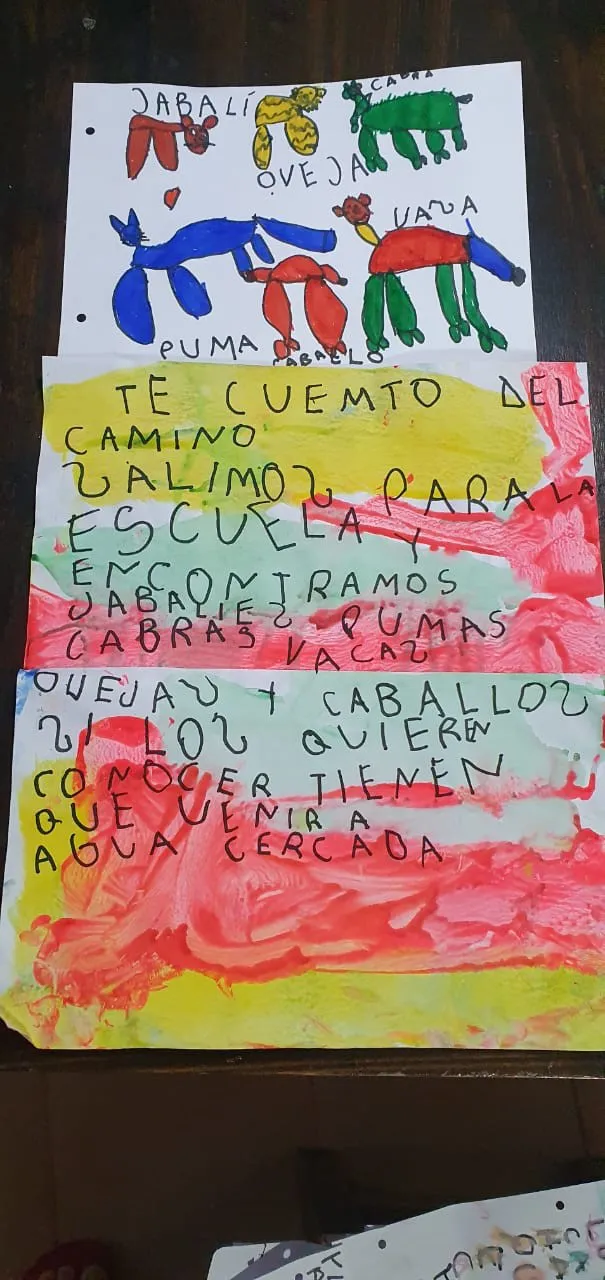 JABALÍ
CABRA
OVEJA
VASA
PUMA
CABAELO
TE CUEMTO DEL
CAMINO
SALIMOS PARA LA
ESCUELA Y
ENCONTRAMOS
JABALIES PUMAS
CABRAS VACAS
OVEJAS Y CABALLOS
SI LOS QUIEREN
CONOCER TIENEN
QUE VENIR A
AGUA CERCADA